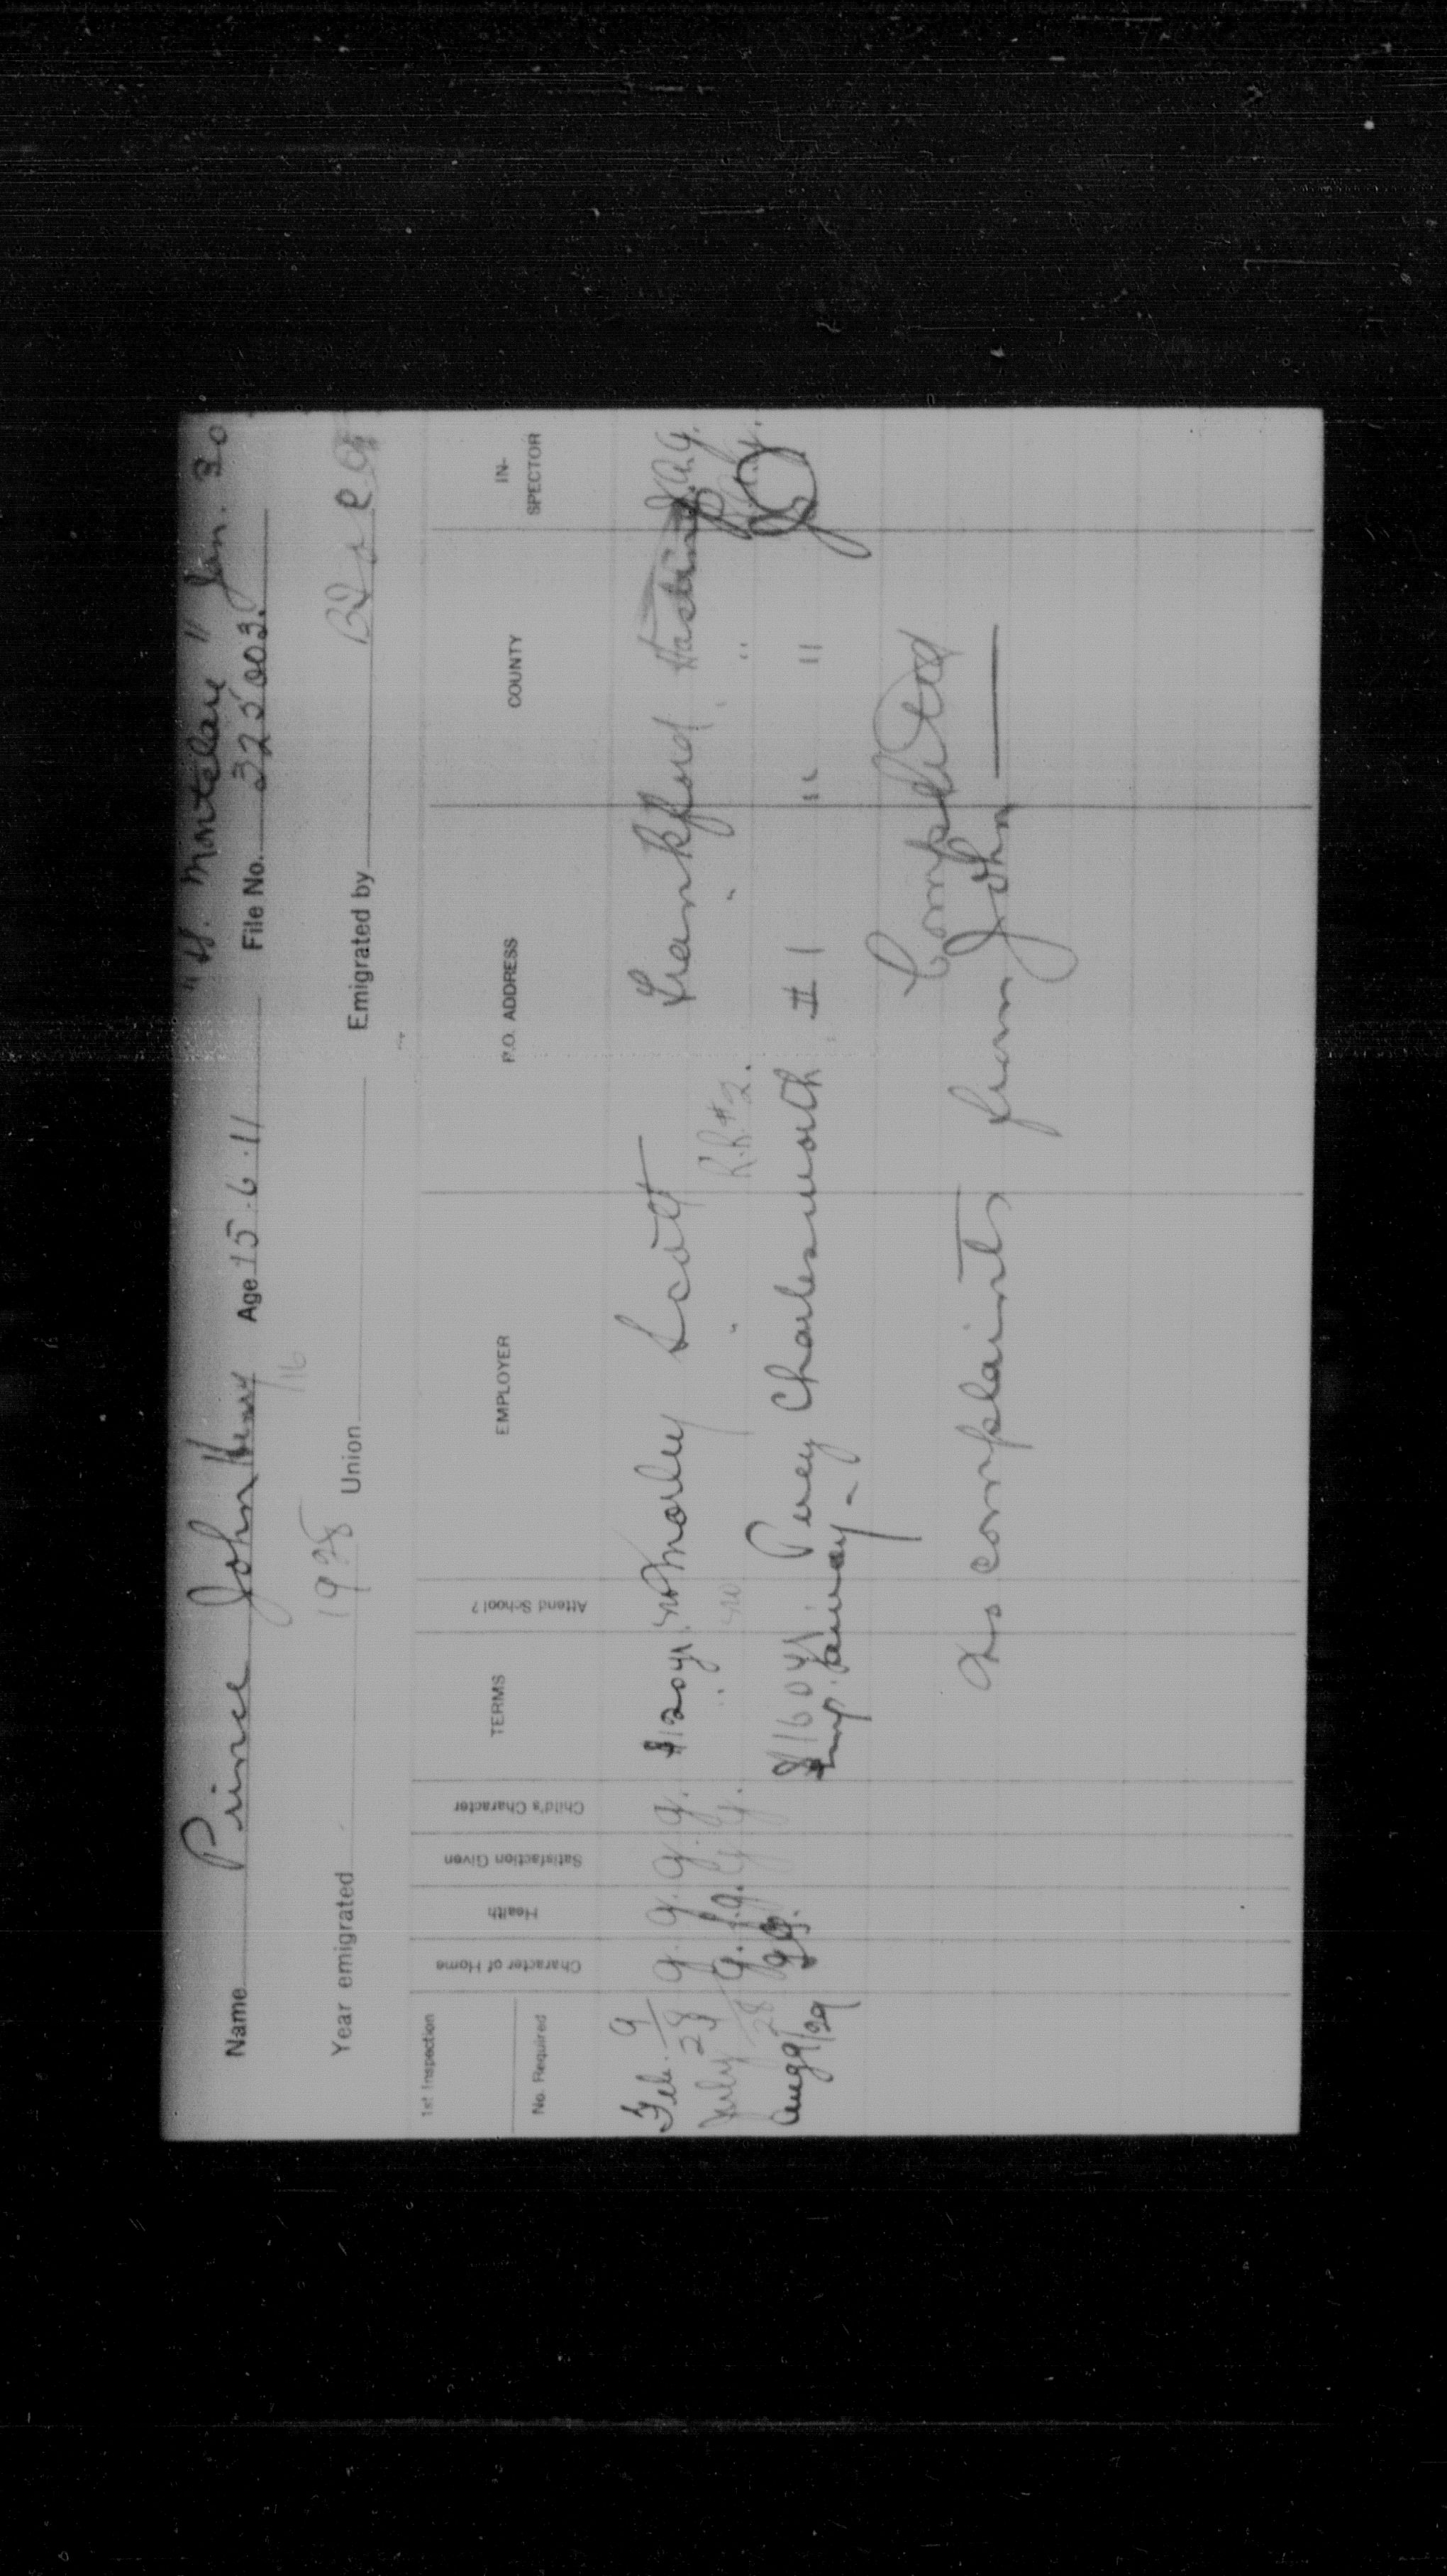 Name Prince John Henry Age 15.6.11 File No. 325003. " Montclare " Jan. 30
/16
Year emigrated 1928 Union Emigrated by
1st Inspection
No. Required
Character of Home
Health
Satisfaction Given
Child's Character
TERMS
Attend School?
EMPLOYER
P.O. ADDRESS
COUNTY
IN-
SPECTOR
Feb. 9/28 g. g. g. g. $120 yr. no Morley Scott Frankford Hastings
July /28 g. f.g. g. g. " no " R.R.#2. " "
Aug 9/29 g g. $160 yr. Percy Charlesworth #1 " "
Temp. away -
Completed
No complaints from John